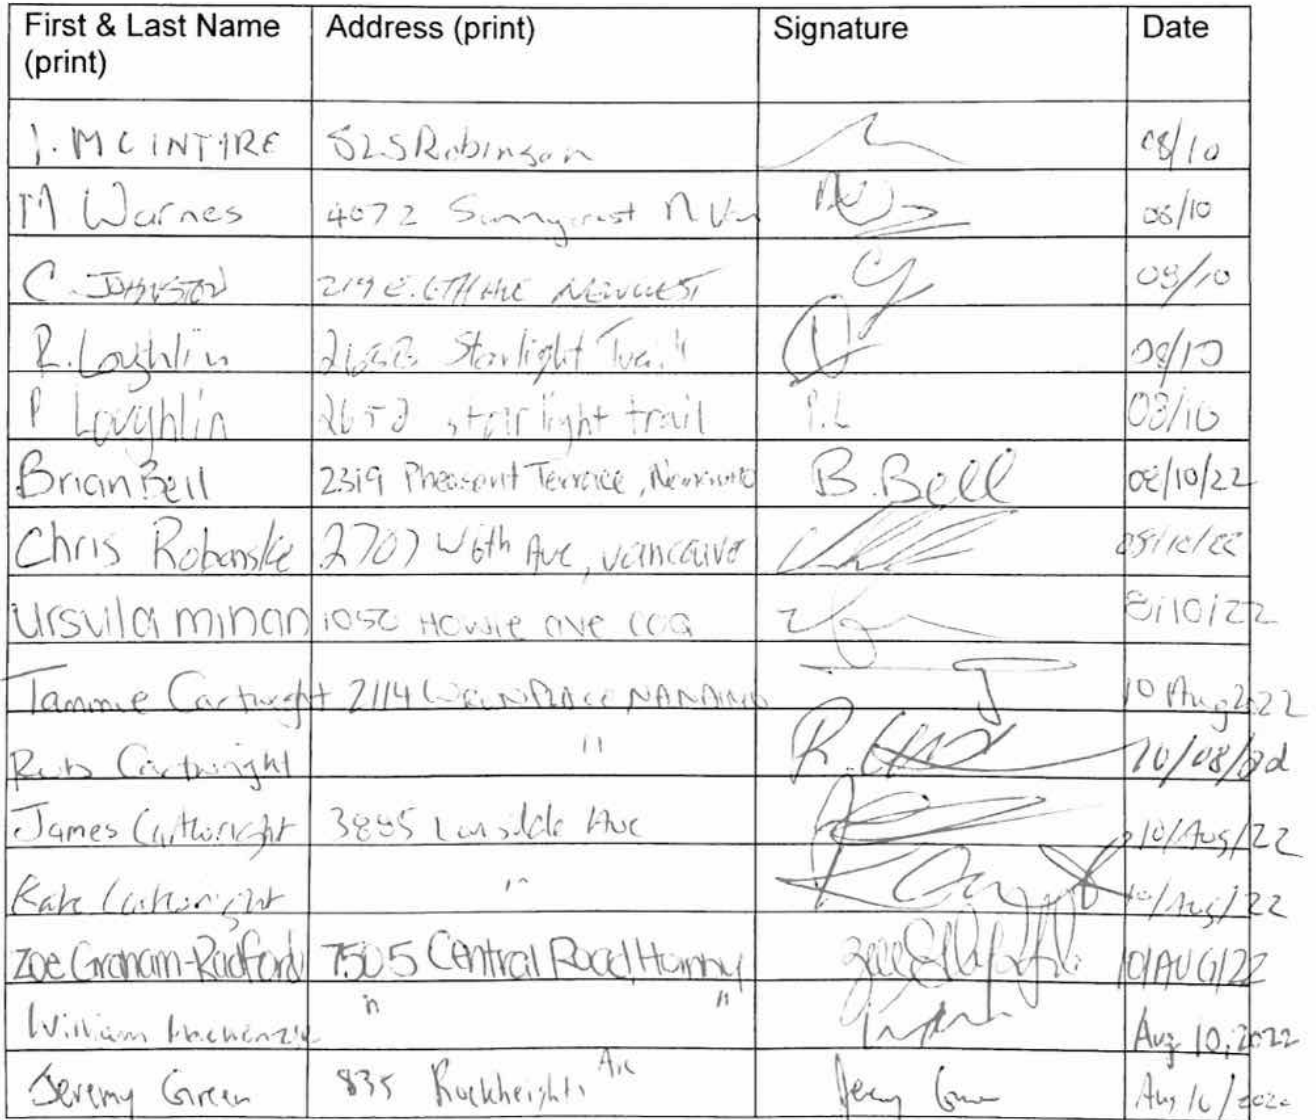 First & Last Name Address (print) Signature Date
(print)
I. MCINTYRE Robinson 08/10
M Warnes 4072 Sunnycrest N Van 08/10
C. JOHNSTON 219 E. 6TH AVE NEWWEST 08/10
R. Loughlin Starlight Trail 08/10
P Loughlin starlight trail P.L 08/10
Brian Bell 2319 Pheasent Terrace, B.Bell 08/10/22
Chris 2707 W6th Ave, vancouve
Ursula minan 1050 Howie ave COQ 8/10/22
Tammie Cartwright 2114 PLACE NANAIMO 10 Aug 2022
Cartwright " 10/08/22
James Cartwright Ave 10/Aug/22
Kate Cartwright " 10/Aug/22
Zoe Graham-Radford 7505 Central Road, Hornby 10/AUG/22
William Mackenzie " " Aug 10, 2022
Jeremy Green 835 Rockheights Ave Aug